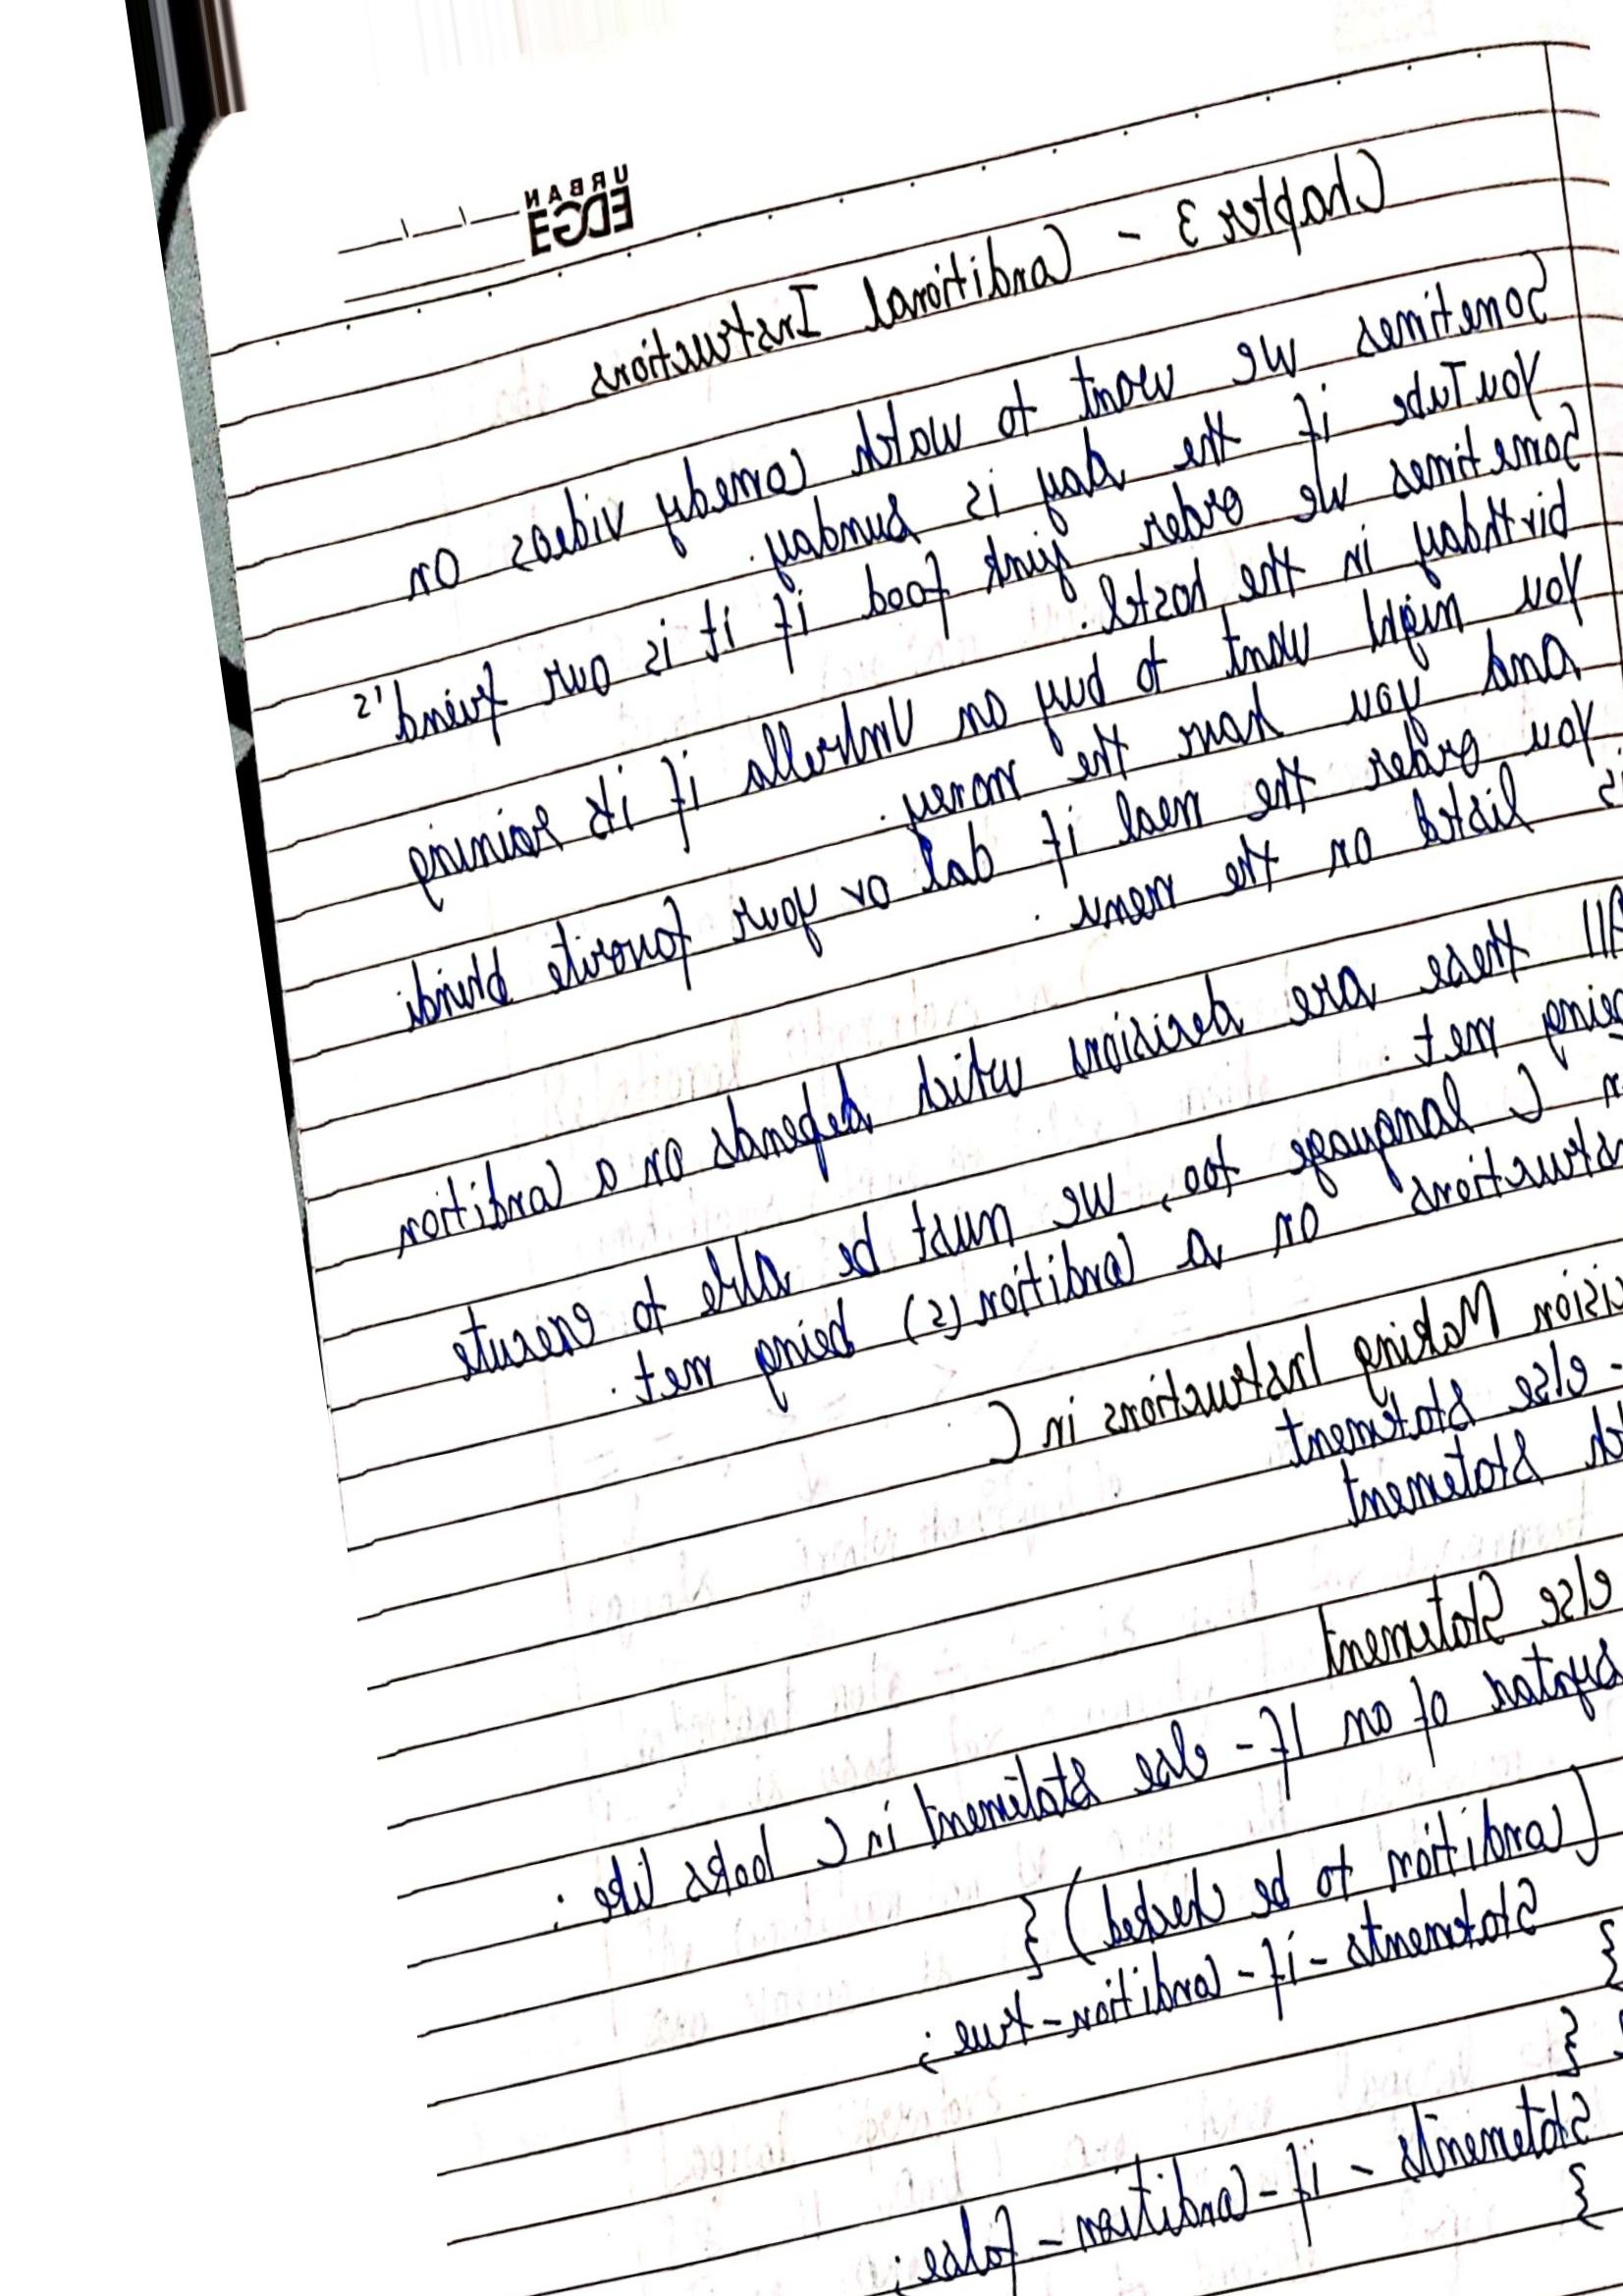 URBAN
EDGE
Chapter 3 - Conditional Instructions
Sometimes we want to watch comedy videos on
YouTube if the day is Sunday.
Sometimes we order junk food if it is our friend's
birthday in the hostel.
You might want to buy an Umbrella if its raining
and you have the money.
You order the meal if dal or your favorite bhindi
is listed on the menu.
All these are decisions which depends on a condition
being met.
C language too, we must be able to execute
on a condition(s) being met.
Making Instructions in C
- else statement
statement
else Statement
syntax of an If - else statement in C looks like :
(condition to be checked) {
Statements - if - condition - true ;
}
{
Statements - if - condition - false ;
}